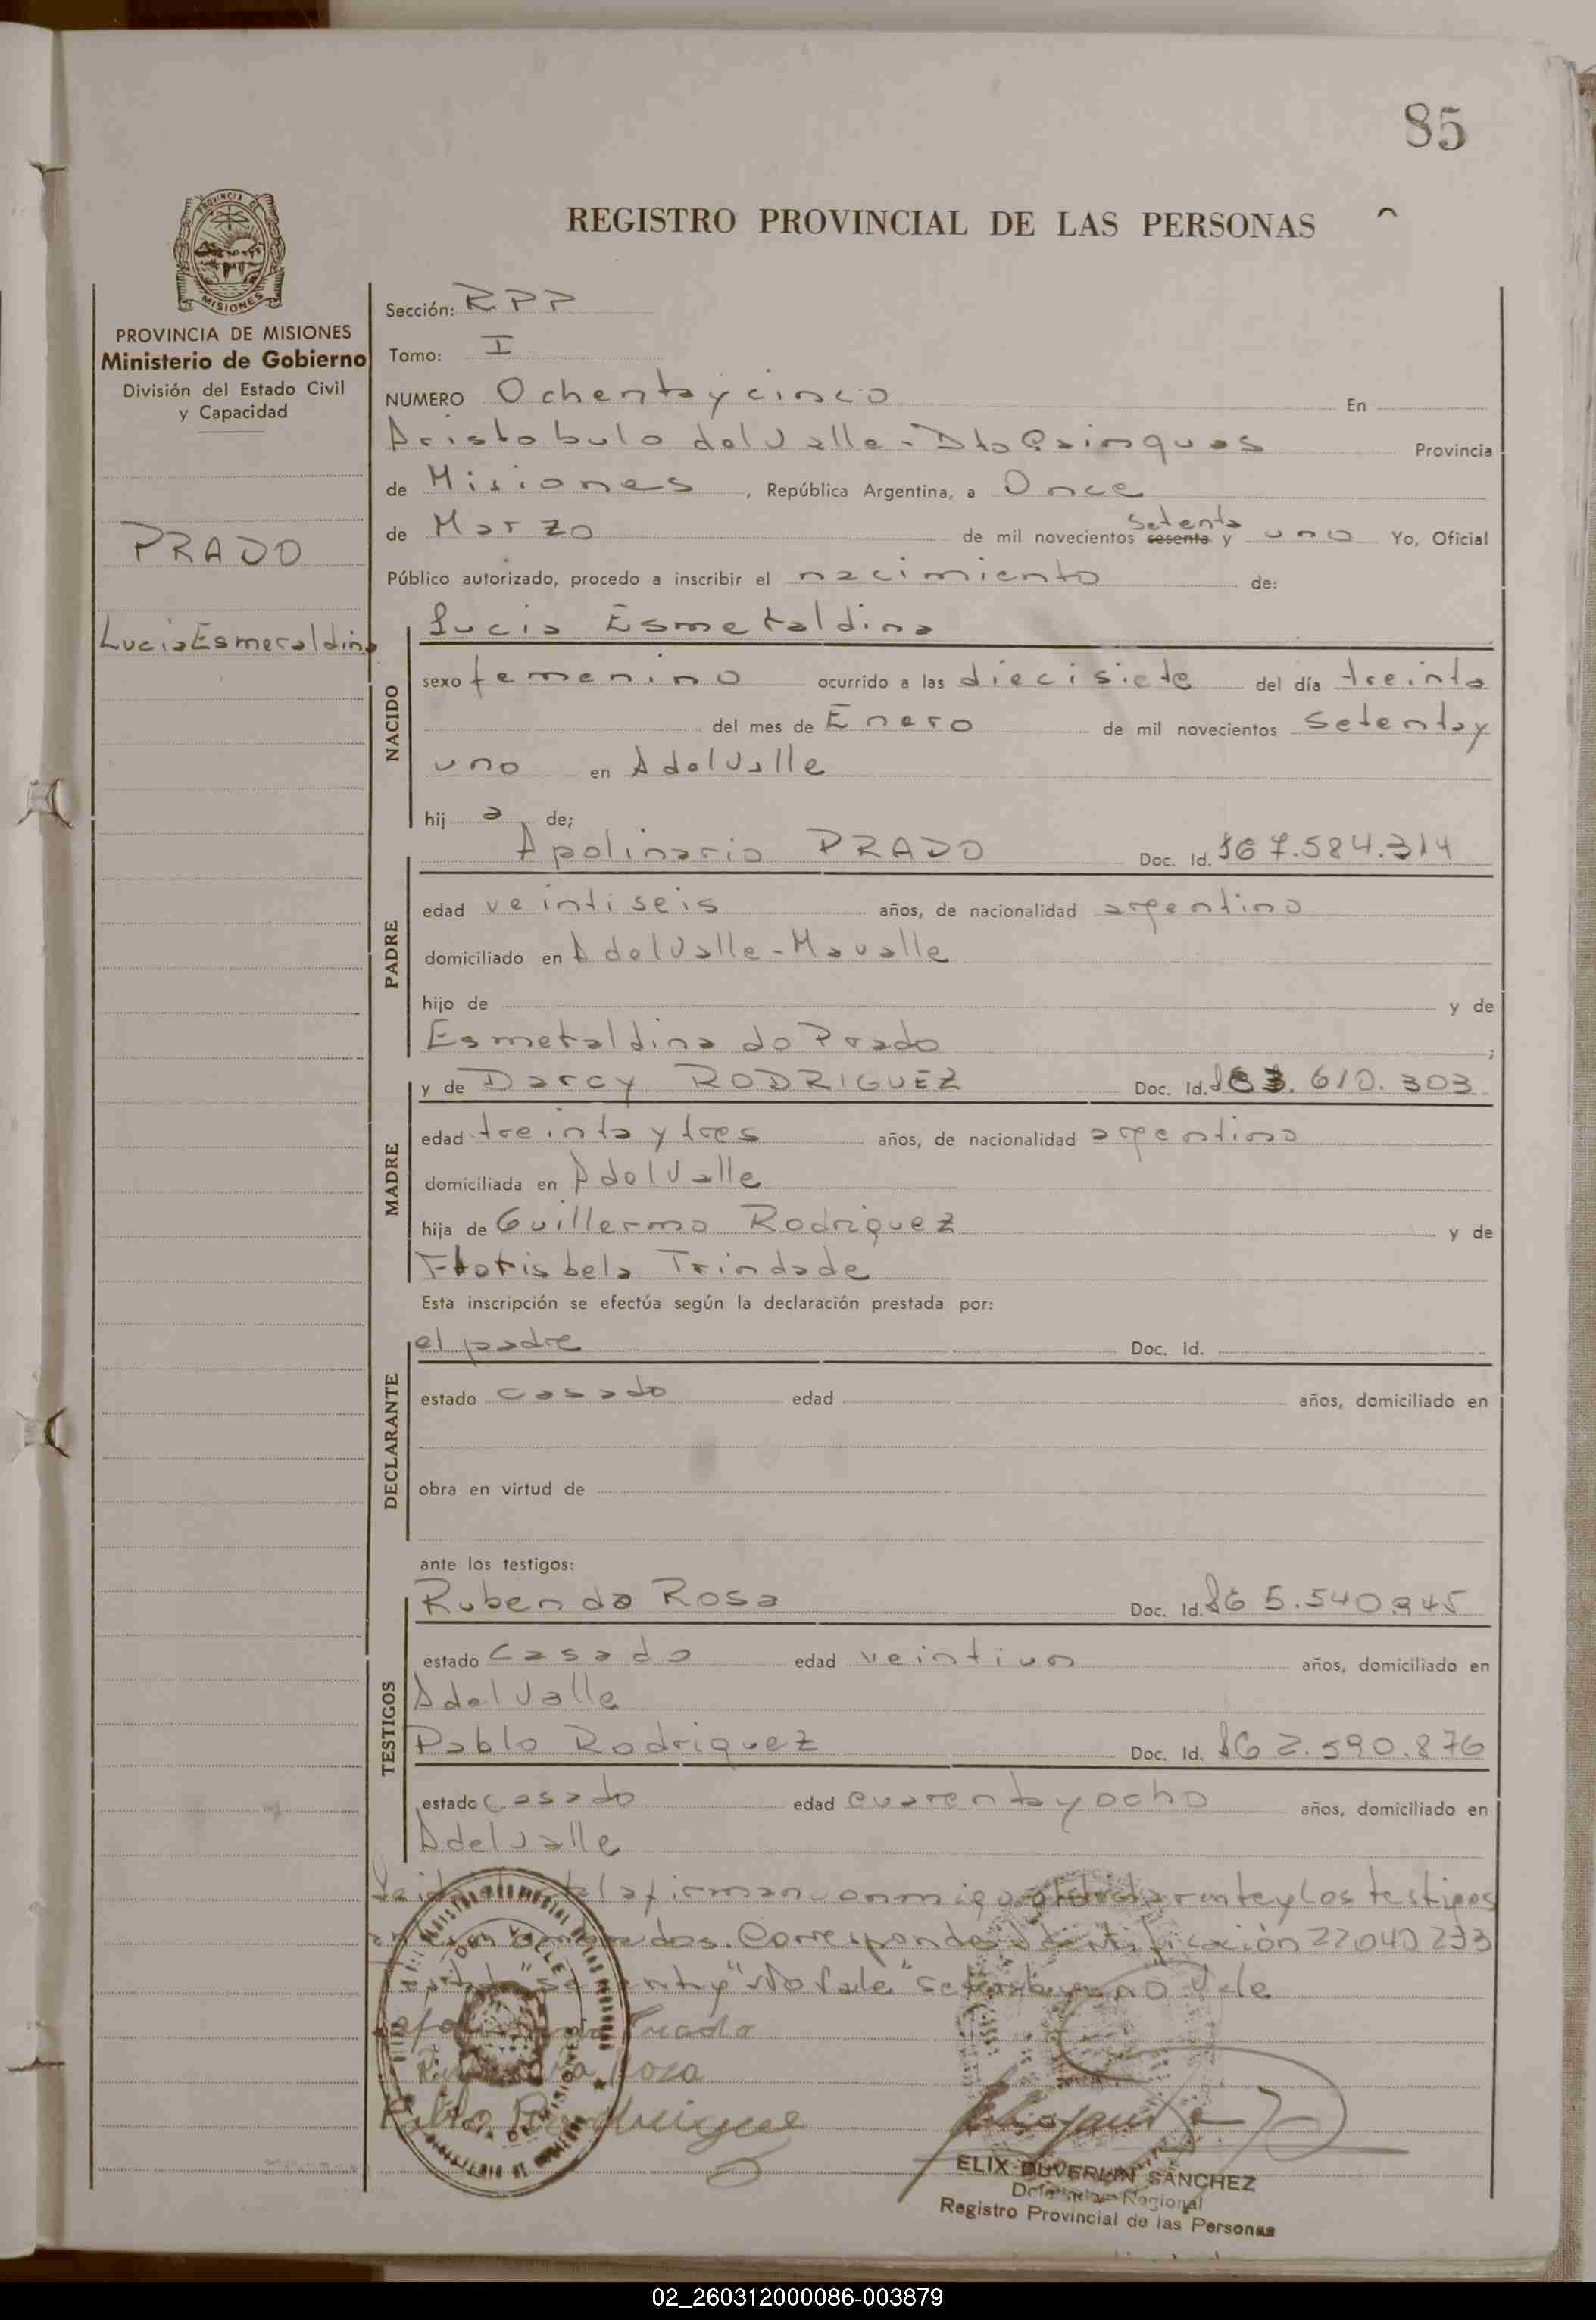 85
REGISTRO PROVINCIAL DE LAS PERSONAS
PROVINCIA DE
MISIONES
PROVINCIA DE MISIONES
Ministerio de Gobierno
División del Estado Civil
y Capacidad
PRADO
Lucia Esmeraldina
Sección: RPP
Tomo: I
NUMERO Ochenta y cinco En
Aristobulo del Valle - Dto Cainguas Provincia
de Misiones, República Argentina, a Once
de Marzo de mil novecientos sesenta Setenta y uno Yo, Oficial
Público autorizado, procedo a inscribir el nacimiento de:
NACIDO
Lucia Esmeraldina
sexo femenino ocurrido a las diecisiete del día treinta
del mes de Enero de mil novecientos Setenta y
uno en A del Valle
hij a de;
PADRE
Apolinario PRADO Doc. Id. 7.584.314
edad veintiseis años, de nacionalidad argentino
domiciliado en A del Valle - Mavalle
hijo de y de
Esmeraldina do Prado ;
MADRE
y de Darcy RODRIGUEZ Doc. Id. 610.303
edad treinta y tres años, de nacionalidad argentina
domiciliada en A del Valle
hija de Guillermo Rodriguez y de
Florisbela Trindade
Esta inscripción se efectúa según la declaración prestada por:
DECLARANTE
el padre Doc. Id.
estado casado edad años, domiciliado en
obra en virtud de
ante los testigos:
TESTIGOS
Ruben da Rosa Doc. Id. 5.540.945
estado casado edad veintiun años, domiciliado en
A del Valle
Pablo Rodriguez Doc. Id. 2.590.876
estado casado edad cuarenta y ocho años, domiciliado en
A del Valle
firman conmigo y los testigos
Corresponde 22040233
Vale
Prado
Rosa
ELIX DUVERLIN SANCHEZ
Delegado Regional
Registro Provincial de las Personas
02_260312000086-003879